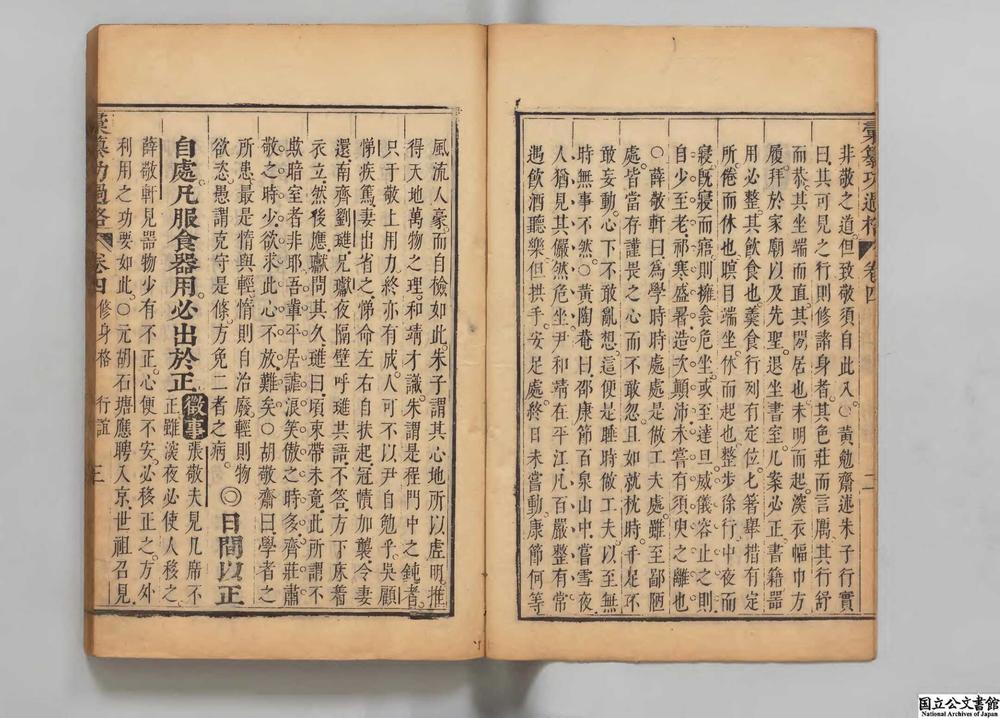 彙纂功過格 卷四 二
非敬之道但致敬須自此入○黃勉齋述朱子行實
曰其可見之行則修諸身者其色莊而言厲其行舒
而恭其坐端而直其閒居也未明而起深衣幅巾方
履拜於家廟以及先聖退坐書室几案必正書籍器
用必整其飲食也羹食行列有定位匕箸舉措有定
所倦而休也瞑目端坐休而起也整步徐行中夜而
寢既寢而寤則擁衾危坐或至達旦威儀容止之則
自少至老祁寒盛暑造次顛沛未嘗有須臾之離也
○薛敬軒曰為學時時處處是做工夫處雖至鄙陋
處皆當存謹畏之心而不敢忽且如就枕時手足不
敢妄動心下不敢亂想這便是睡時做工夫以至無
時無事不然○黃陶菴曰邵康節百泉山中嘗雪夜
人猶見其儼然危坐尹和靖在平江凡百嚴整有常
遇飲酒聽樂但拱手安足處終日未嘗動康節何等
風流人豪而自檢如此朱子謂其心地所以虛明推
得天地萬物之理和靖才識朱謂是程門中之鈍者
只于敬上用力終亦有成人可不以尹自勉乎吳顧
悌疾篤妻出省之悌命左右自扶起冠幘加襲令妻
還南齊劉璡兄瓛夜隔壁呼璡共語不答方下牀著
衣立然後應瓛問其久璡曰頃束帶未竟此所謂不
欺暗室者非耶吾輩平居謔浪笑傲之時多齊莊肅
敬之時少欲求此心不放難矣○胡敬齋曰學者之
所患最是惰與輕惰則自治廢輕則物
欲恣愚謂克守是條方免二者之病◎日間以正
自處凡服食器用必出於正 徵事 張敬夫見几席不
正雖深夜必使人移之
薛敬軒見器物少有不正心便不安必移正之方外
利用之功要如此○元胡石塘應聘入京世祖召見
彙纂功過格 卷四 修身格 行誼 三
国立公文書館
National Archives of Japan